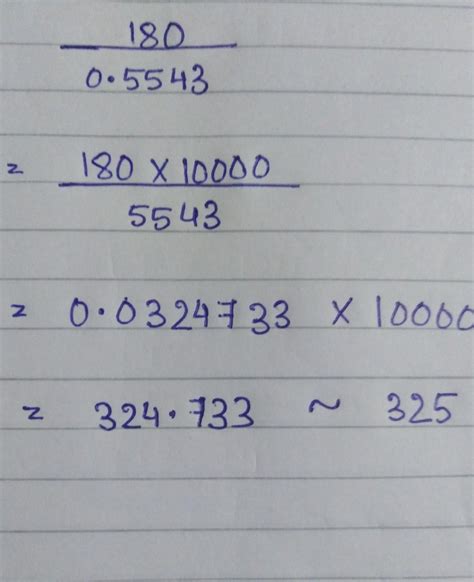 180
0.5543
= 180 × 10000
5543
= 0.0324733 × 10000
= 324.733 ~ 325